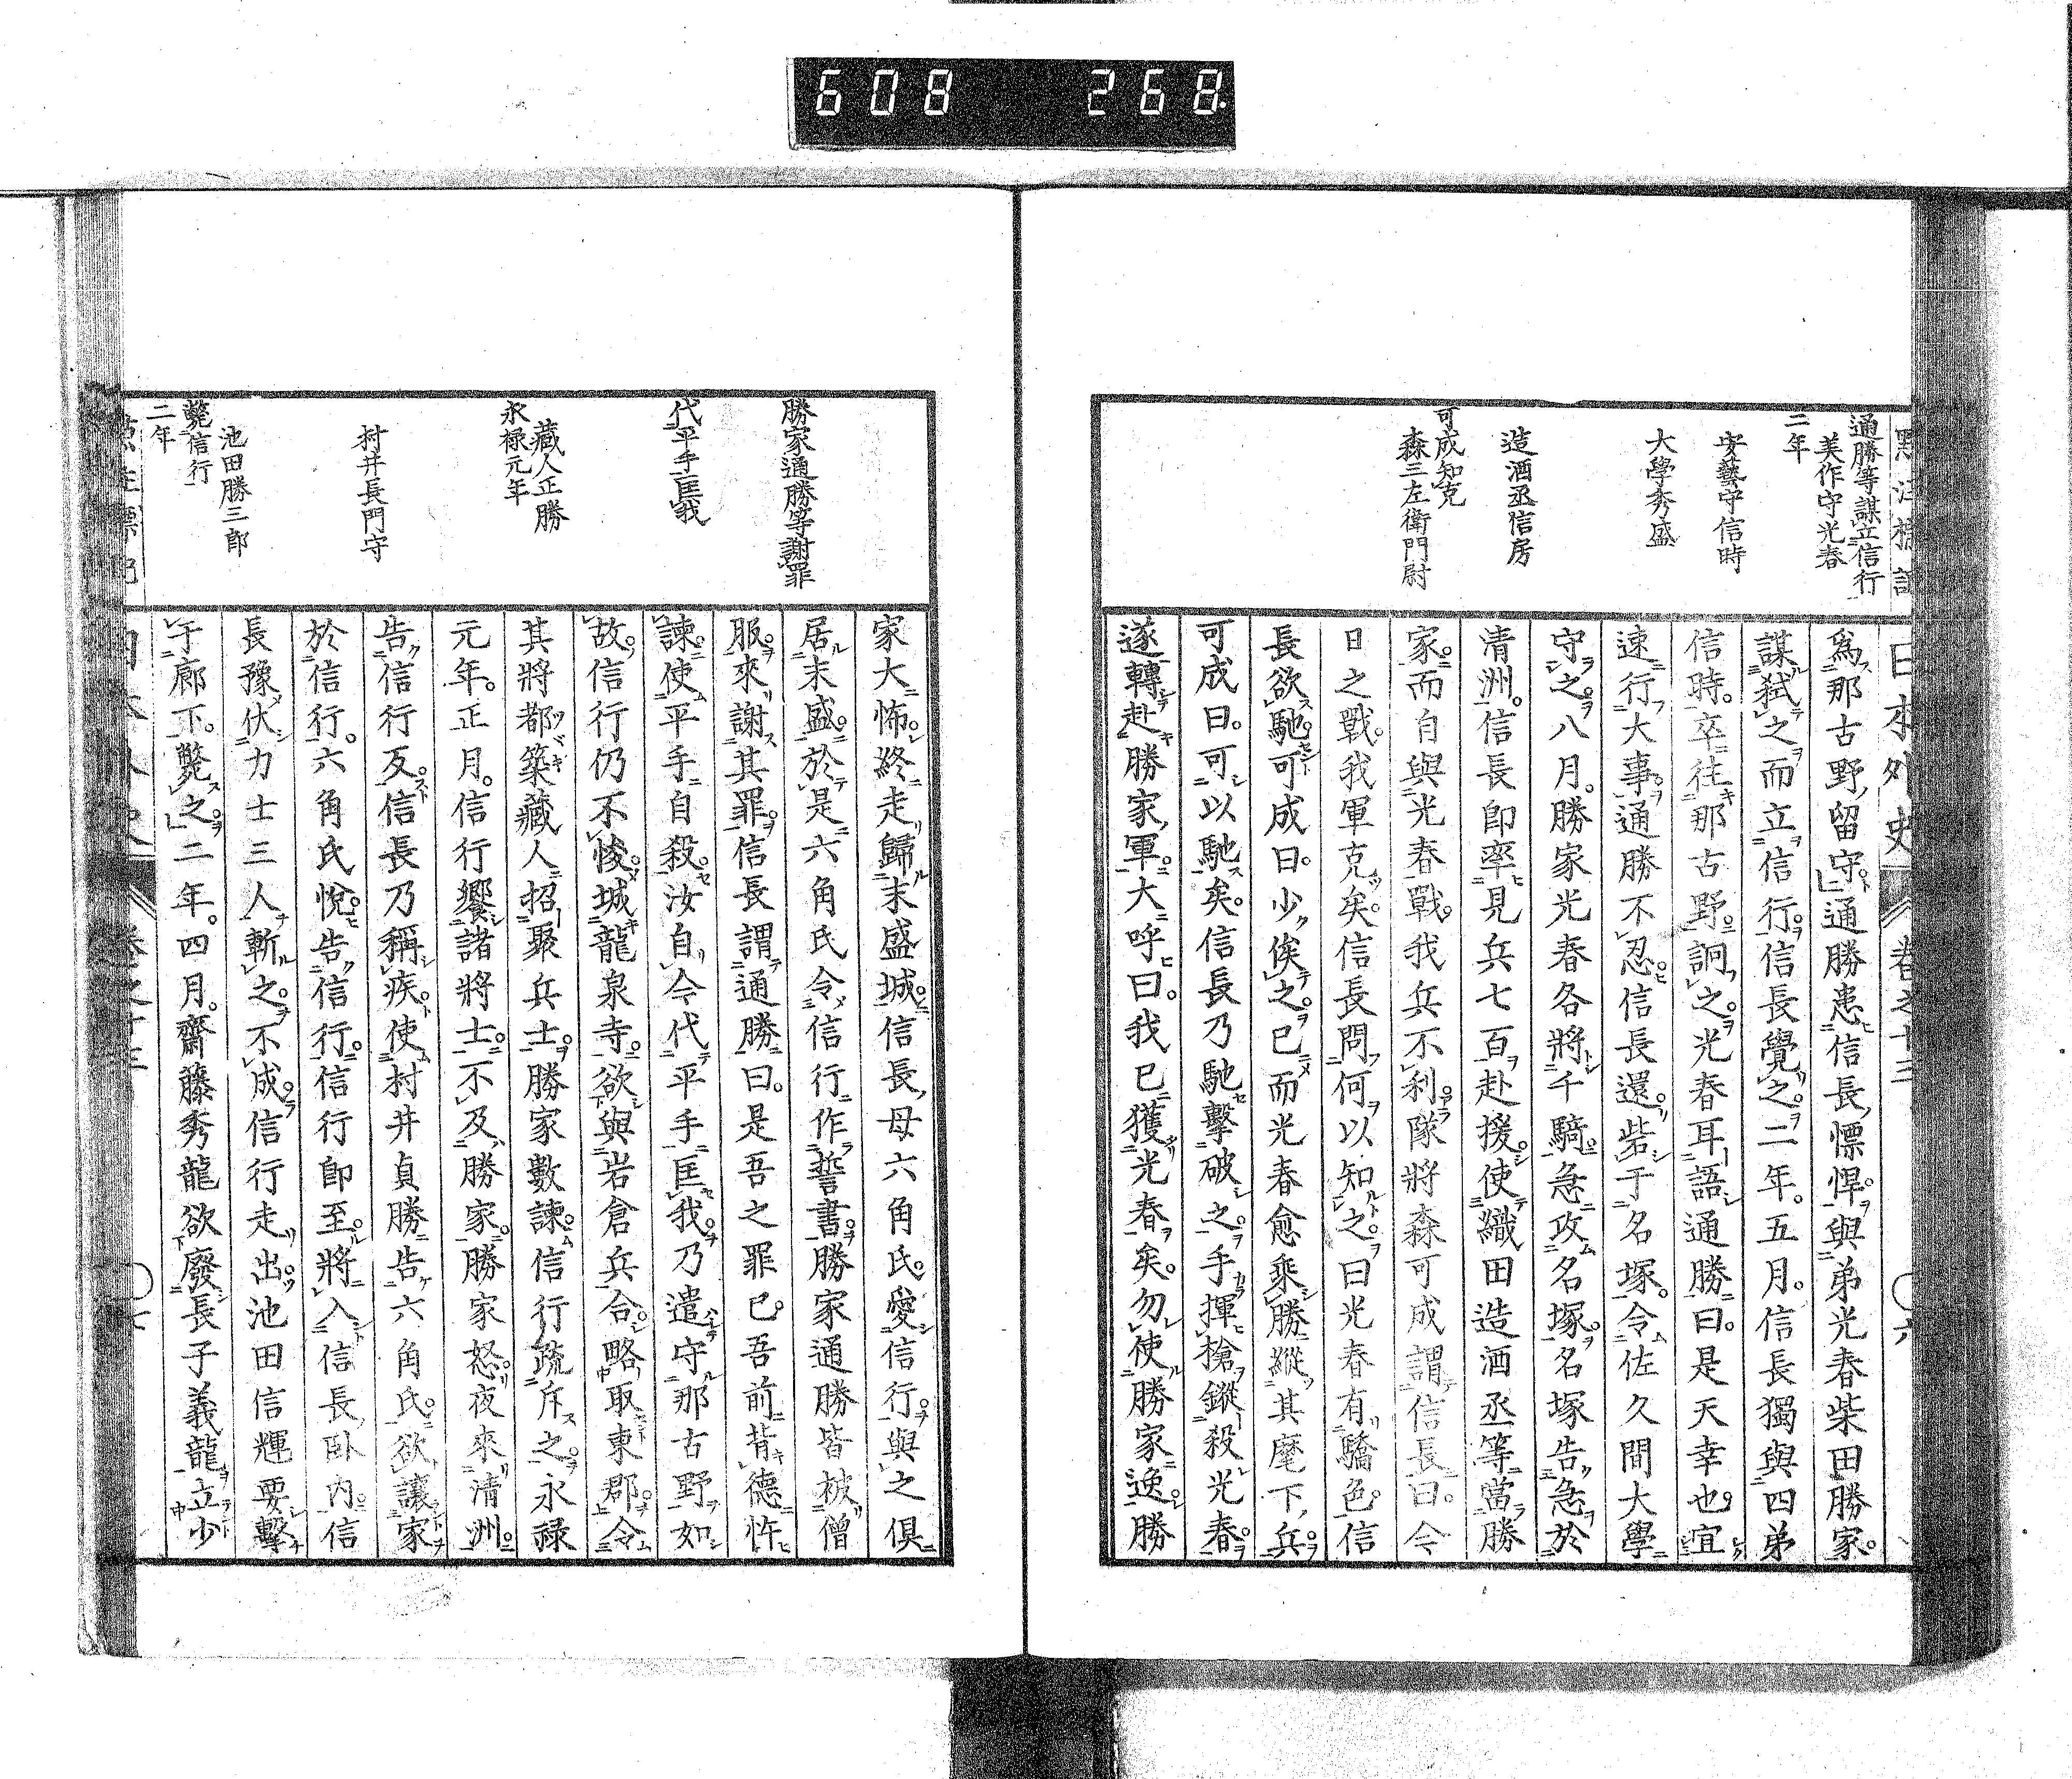 608 268
日本外史 卷之十三 〇六
通勝等謀立信行
美作守光春
二年
安藝守信時
大學秀盛
造酒丞信房
可成知克
森三左衛門尉
爲那古野留守通勝患信長慓悍與弟光春柴田勝家
謀弑之而立信行信長覺之二年五月信長獨與四弟
信時卒往那古野詗之光春耳語通勝曰是天幸也宜
速行大事通勝不忍信長還砦于名塚令佐久間大學
守之八月勝家光春各將千騎急攻名塚名塚告急於
清洲信長即率見兵七百赴援使織田造酒丞等當勝
家而自與光春戰我兵不利隊將森可成謂信長曰今
日之戰我軍克矣信長問何以知之曰光春有驕色信
長欲馳可成曰少俟之已而光春愈乘勝縱其麾下兵
可成曰可以馳矣信長乃馳擊破之手揮槍鏦殺光春
遂轉赴勝家軍大呼曰我已獲光春矣勿使勝家逸勝
勝家通勝等謝罪
代平手匡我
藏人正勝
永祿元年
村井長門守
池田勝三郎
斃信行
二年
家大怖終走歸末盛城信長母六角氏愛信行與之俱
居末盛於是六角氏令信行作誓書勝家通勝皆被僧
服來謝其罪信長謂通勝曰是吾之罪已吾前背德忤
諫使平手自殺汝自今代平手匡我乃遣守那古野如
故信行仍不悛城龍泉寺欲與岩倉兵合略取東郡令
其將都築藏人招聚兵士勝家數諫信行疏斥之永祿
元年正月信行饗諸將士不及勝家勝家怒夜來清洲
告信行反信長乃稱疾使村井貞勝告六角氏欲讓家
於信行六角氏悅告信行信行即至將入信長臥内信
長豫伏力士三人斬之不成信行走出池田信輝要擊
于廊下斃之二年四月齋藤秀龍欲廢長子義龍立少